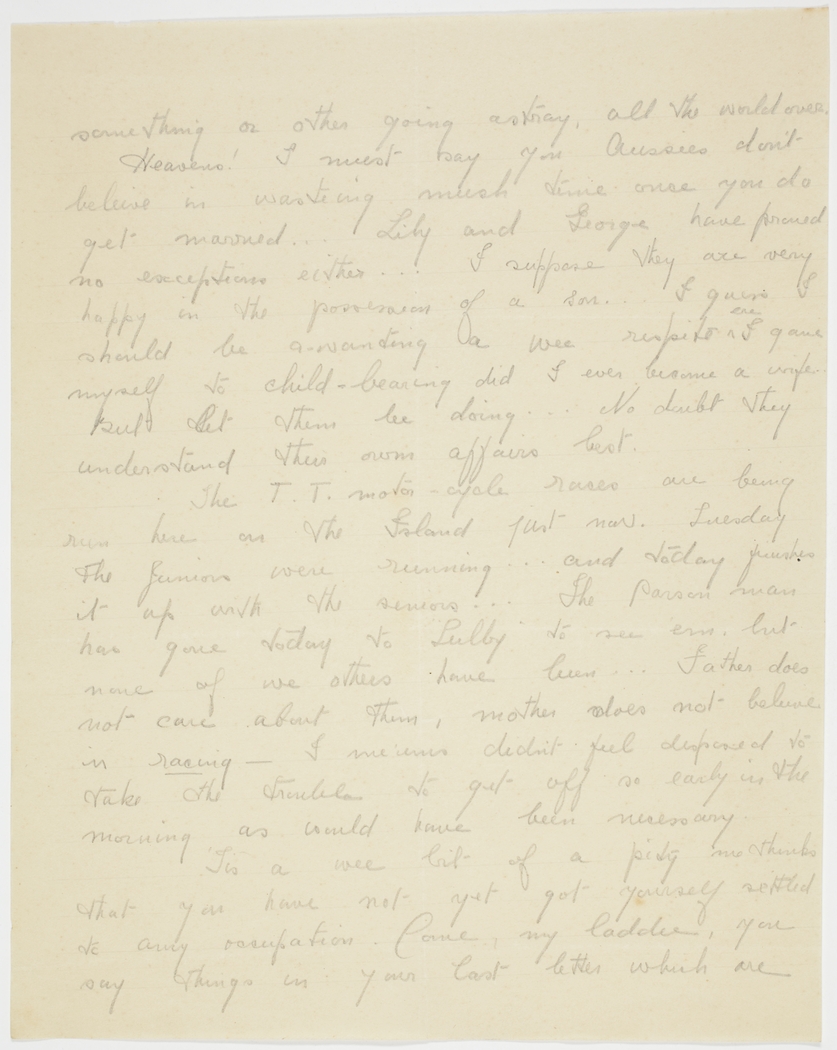 something or other going astray, all the world over.
Heavens! I must say you Aussies don't
beleive in wasting much time once you do
get married... Lily and George have proved
no exceptions either.... I suppose they are very
happy in the possession of a son... I guess I
should be a-wanting a wee respite ere I gave
myself to child-bearing did I ever become a wife..
But let them be doing... No doubt they
understand their own affairs best.
The T.T. motor-cycle races are being
run here on the Island just now. Tuesday
the Juniors were running... and today finishes
it up with the seniors... The Parson man
has gone today to Sulby to see em. but
none of we others have been... Father does
not care about them, mother does not beleive
in racing — I me'ums didn't feel disposed to
take the trouble to get off so early in the
morning as would have been necessary.
'Tis a wee bit of a pity me thinks
that you have not yet got yourself settled
to any occupation. Come, my laddie, you
say things in your last letter which are